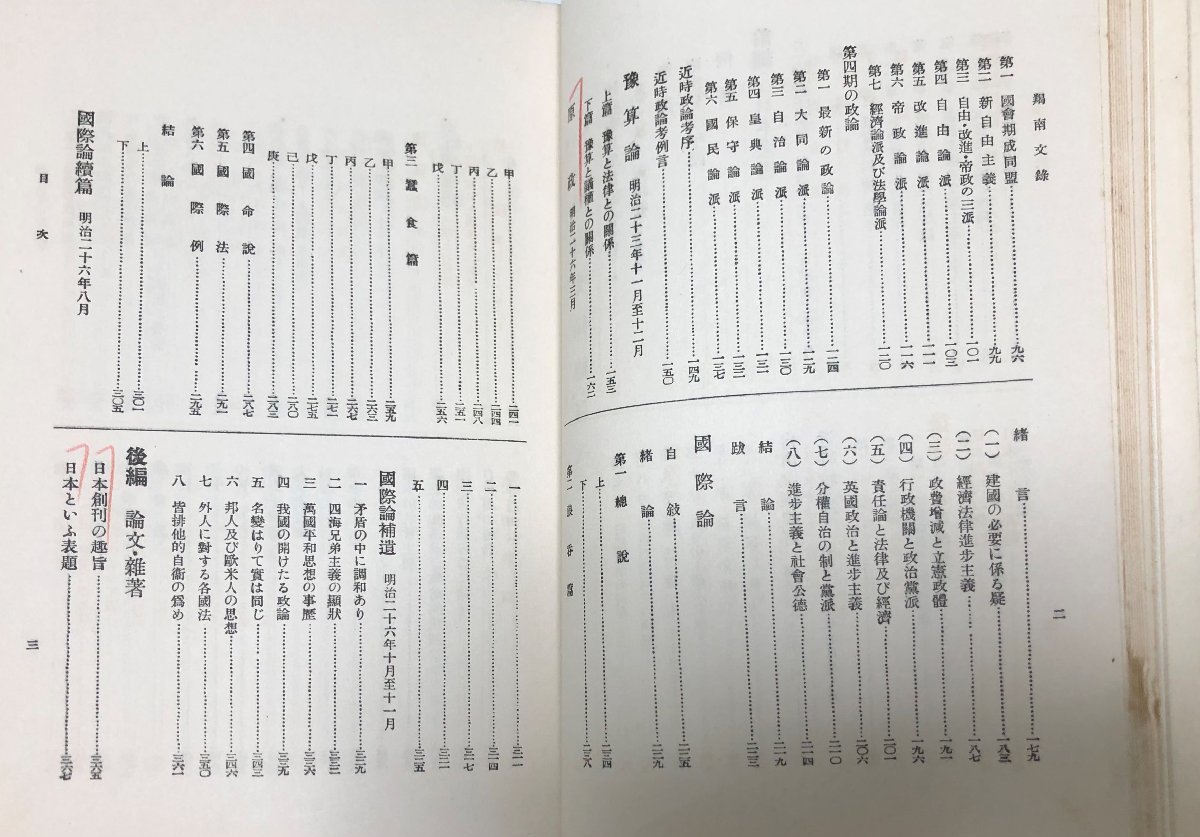 羯南文錄
第一 國會期成同盟……九六
第二 新自由主義……九九
第三 自由・改進・帝政の三派……一〇一
第四 自由論派……一〇三
第五 改進論派……一一一
第六 帝政論派……一一六
第七 經濟論派及び法學論派……一二〇
第四期の政論
第一 最新の政論……一二四
第二 大同論派……一二九
第三 自治論派……一三〇
第四 皇典論派……一三一
第五 保守論派……一三二
第六 國民論派……一三七
近時政論考序……一四九
近時政論考例言……一五〇
豫算論 明治二十三年十一月至十二月
上篇 豫算と法律との關係……一五三
下篇 豫算と議權との關係……一六二
原政 明治二十六年三月
緒言……一七九
(一) 建國の必要に係る疑……一八三
(二) 經濟法律進步主義……一八七
(三) 政費增減と立憲政體……一九一
(四) 行政機關と政治黨派……一九六
(五) 責任論と法律及び經濟……二〇一
(六) 英國政治と進步主義……二〇六
(七) 分權自治の制と黨派……二一一
(八) 進步主義と社會公德……二一四
結論……二一九
跋言……二二三
國際論
自敍……二二五
緒論……二二九
第一 總說
上……二三四
下……二三八
二
甲……二四一
乙……二四四
丙……二四八
丁……二五一
戊……二五六
第三 蠶食篇
甲……二五九
乙……二六三
丙……二六七
丁……二七一
戊……二七五
己……二八〇
庚……二八三
第四 國命說……二八七
第五 國際法……二九一
第六 國際例……二九五
結論
上……三〇一
下……三〇五
國際論續篇 明治二十六年八月
一……三一一
二……三一四
三……三一七
四……三二一
五……三二五
國際論補遺 明治二十六年十月至十一月
一 矛盾の中に調和あり……三二九
二 四海兄弟主義の顯狀……三三二
三 萬國平和思想の事歷……三三六
四 我國の開けたる政論……三三九
五 名變はりて實は同じ……三四三
六 邦人及び歐米人の思想……三四六
七 外人に對する各國法……三五〇
八 皆排他的自衞の爲め……三六一
後編 論文・雜著
日本創刊の趣旨……三六五
日本といふ表題……三六七
目次
三